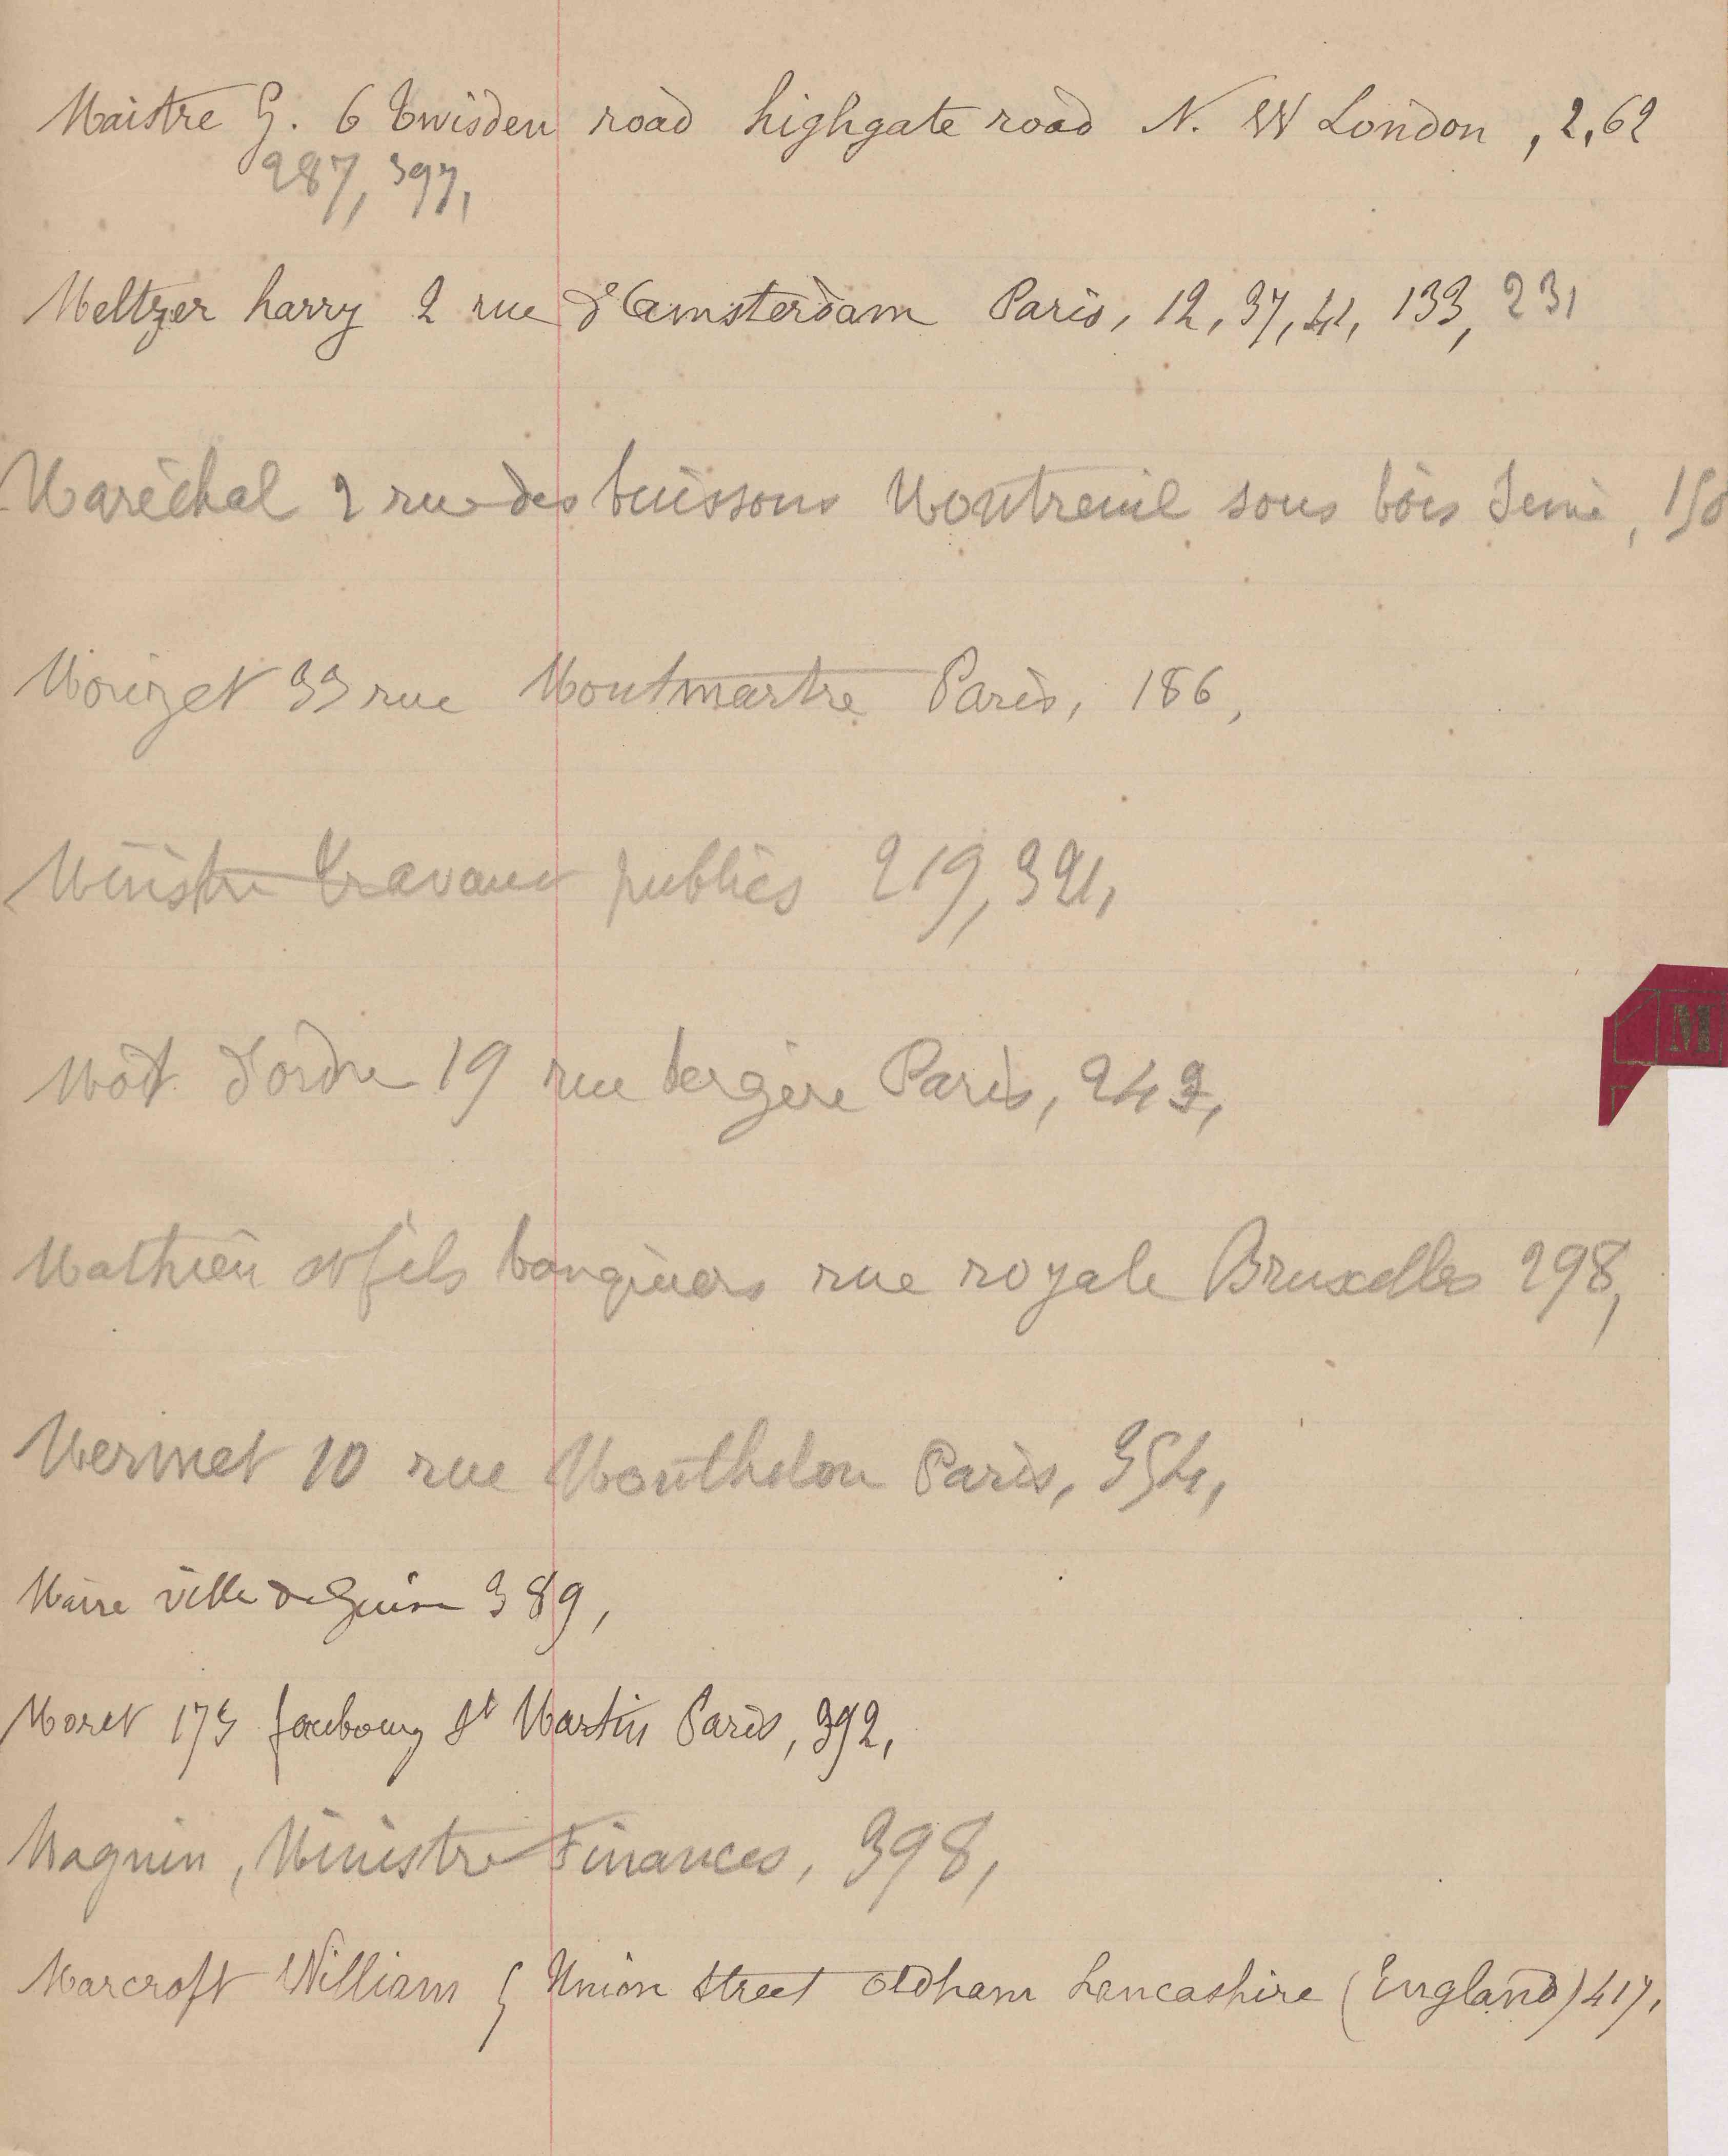 Maistre G. 6 Twisden road highgate road N. W London, 2, 62
287, 397,
Meltzer harry 2 rue d'Amsterdam Paris, 12, 37, 41, 133, 231
Maréchal 2 rue des buissons Montreuil sous bois Seine, 150
Morizet 33 rue Montmartre Paris, 186,
Ministre travaux publics 219, 321,
M
Mot d'ordre 19 rue bergère Paris, 242,
Mathieu et fils banquiers rue royale Bruxelles 298,
Mermet 10 rue Montholon Paris, 354,
Maire ville de Guise 389,
Moret 175 faubourg St Martin Paris, 392,
Magnin, Ministre Finances, 398,
Marcroft William 5 Union Street Oldham Lancashire (England) 417,